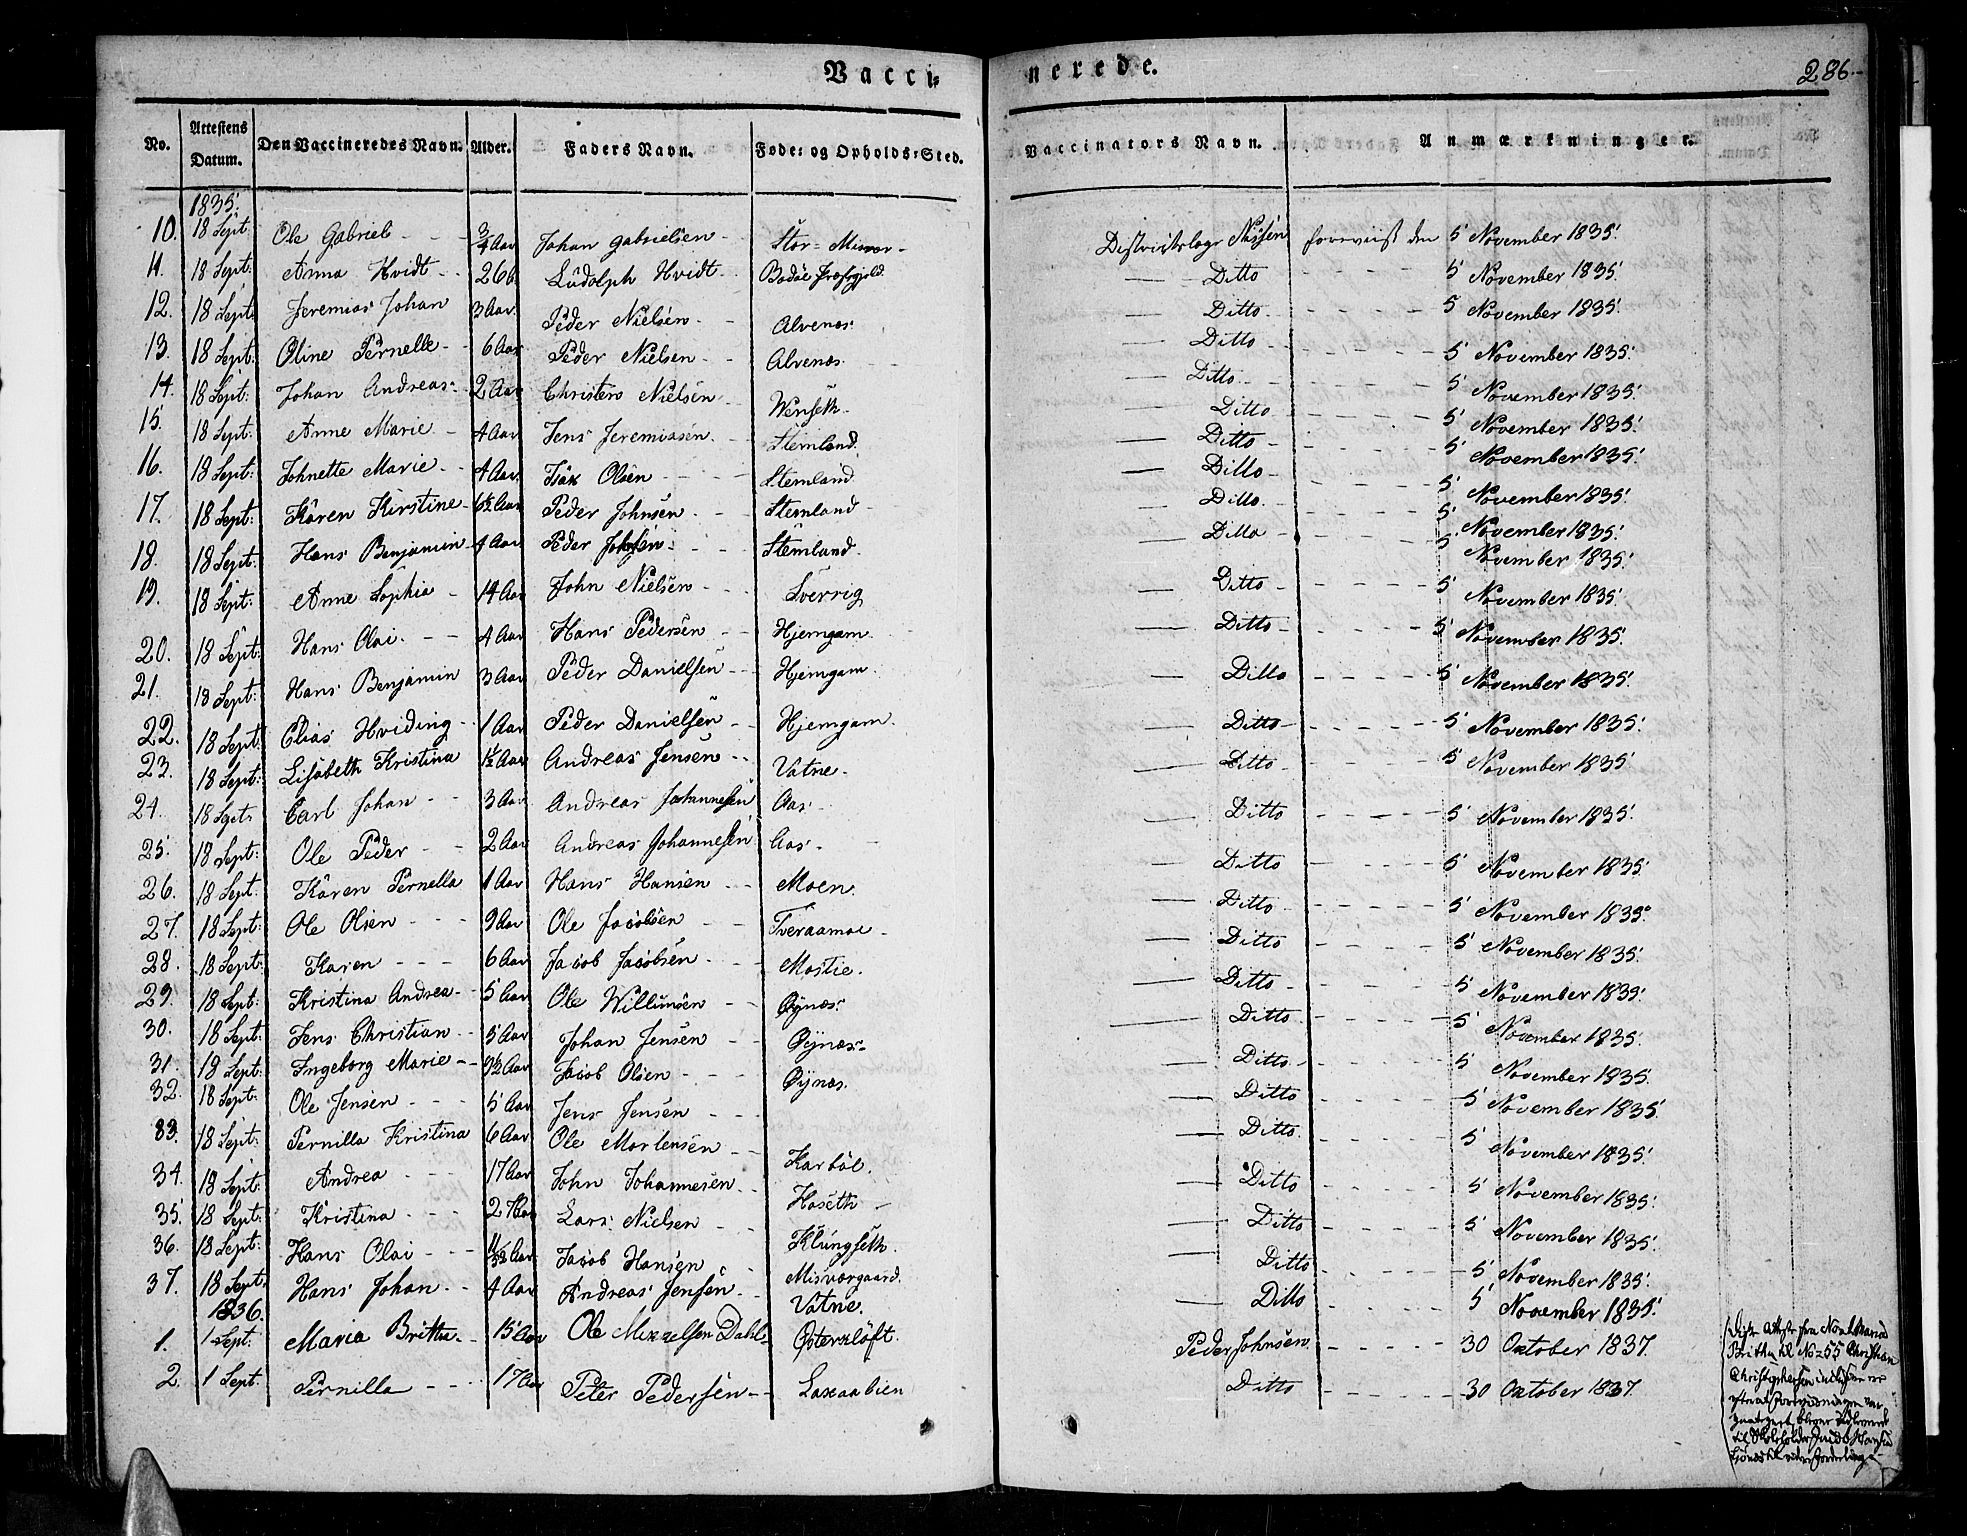 Vacci-nerede.
286.
No. | Attestens Datum. | Den Vaccineredes Navn. | Alder. | Faders Navn. | Føde- og Opholds-Sted. | Vaccinators Navn. | Anmærkninger.
1835.
10. 18 Sept. Ole Gabriel - - 3/4 Aar Johan Gabrielsen - Stor-Misvær - Nissen foreviist den 5 November 1835.
11. 18 Sept. Anna Hvidt - - 26 Ludolph Hvidt - Bodöe Præstegjeld — Ditto - - - 5 November 1835.
12. 18 Sept. Jeremias Johan 3 Aar Peder Nielsen - - Alvenæs — Ditto - - - 5 November 1835.
13. 18 Sept. Oline Pernelle - 6 Aar Peder Nielsen - - Alvenæs - — Ditto - - - 5 November 1835.
14. 18 Sept. Johan Andreas - 2 Aar Christen Nielsen - Wenseth - — Ditto - - - 5 November 1835.
15. 18 Sept. Anne Marie - 4 Aar Jens Jeremiasen - Stemland. — Ditto - - - 5 November 1835.
16. 18 Sept. Johnette Marie - 4 Aar Isak Olsen - - - Stemland — Ditto - - - 5 November 1835.
17. 18 Sept. Karen Kirstine - 6½ Aar Peder Johnsen - - Stemland - — Ditto - - - 5 November 1835.
18. 18 Sept. Hans Benjamin - 4 Aar Peder Johnsen - - Stemland - — Ditto - - - 5 November 1835.
19. 18 Sept. Anne Sophia - 14 Aar John Nielsen - - - Sverrig — Ditto - - - 5 November 1835.
20. 18 Sept. Hans Olai - - 4 Aar Hans Pedersen - - Hjemgam. — Ditto - - - 5 November 1835.
21. 18 Sept. Hans Benjamin 3 Aar Peder Danielsen - - Hjemgam. — Ditto - - - 5 November 1835.
22. 18 Sept. Elias Hviding - - 1 Aar Peder Danielsen - - Hjemgam. — Ditto - - - 5 November 1835.
23. 18 Sept. Lisabeth Kristina 1½ Aar Andreas Jensen - - Vatne - — Ditto - - - 5 November 1835
24. 18 Sept. Carl Johan - - 3 Aar Andreas Johannesen Aas - — Ditto - - - 5 November 1835.
25. 18 Sept. Ole Peder - - 2 Aar Andreas Johannesen Aas - — Ditto - - - 5 November 1835.
26. 18 Sept. Karen Pernella 1 Aar Hans Hansen - - Moen. — Ditto - - - 5 November 1835.
27. 18 Sept. Ole Olsen - - - 9 Aar Ole Jacobsen - - Tveraamoe - — Ditto - - - 5 November 1835.
28. 18 Sept. Karen - - - 6 Aar Jacob Jacobsen - - Mostie. — Ditto - - - 5 November 1835.
29. 18 Sept. Kristina Andrea - 5 Aar Ole Willumsen - - Øynæs. — Ditto - - - 5 November 1835.
30. 18 Sept. Jens Christian - - 5 Aar Johan Jensen - - Øynæs - — Ditto - - - 5 November 1835.
31. 18 Sept. Ingeborg Marie - - 9½ Aar Jacob Olsen - - - Øynæs. — Ditto - - - 5 November 1835.
32. 18 Sept. Ole Jensen - - - 5 Aar Jens Jensen - - - — Ditto - - - 5 November 1835.
33. 18 Sept. Pernilla Kristina 6 Aar Ole Mortensen - - Karböl. — Ditto - - - 5 November 1835.
34. 18 Sept. Andrea - - - 17 Aar John Johannesen - - Haseth - — Ditto - - - 5 November 1835.
35. 18 Sept. Kristina - - - 2 Aar Lars Nielsen - - Klungseth. — Ditto - - - 5 November 1835.
36. 18 Sept. Hans Olai - - - Aar Jacob Hansen - Misværgaard. — Ditto - - - 5 November 1835.
37. 18 Sept. Hans Johan - - 4 Aar Andreas Jensen - - Vatne. — Ditto - - - 5 November 1835.
1836.
1. 1 Sept. Maria Britha - - 15 Aar Ole Mikkelsen Dahl - Österkløft. Peder Johnsen - - - 30 Oktober 1837.
2. 1 Sept. Pernilla - - - 17 Aar Peter Pedersen - - Laxaalien Ditto - - - 30 Oktober 1837.
Disse Attester fra No 1 Maria
Britha til No 55 Christian
Christophersen inclusive er